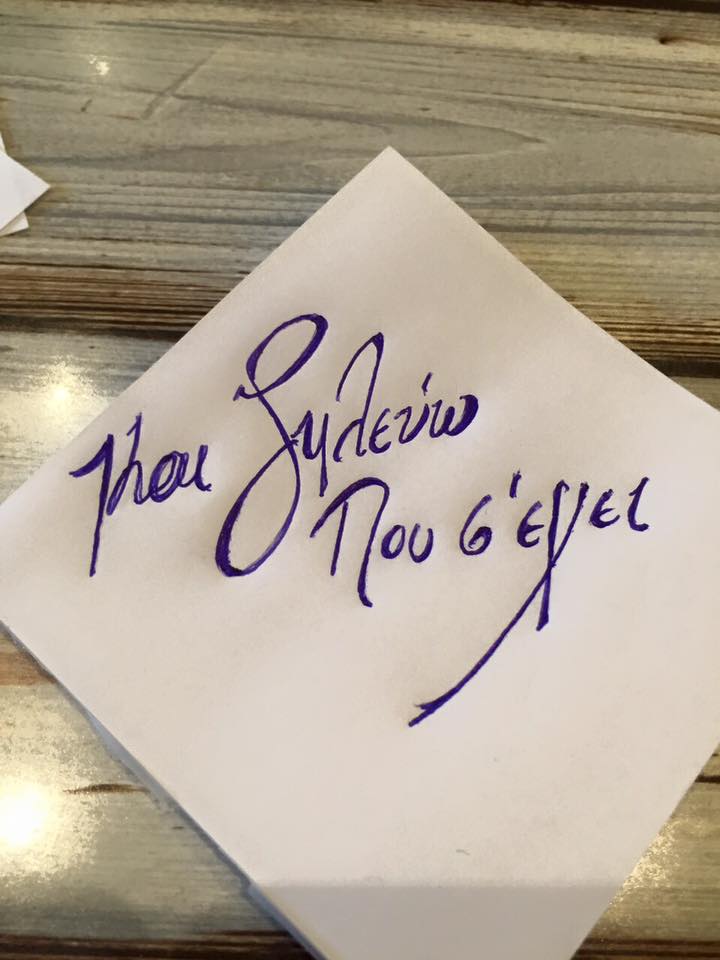 Και ζηλεύω
Που σ'έχει